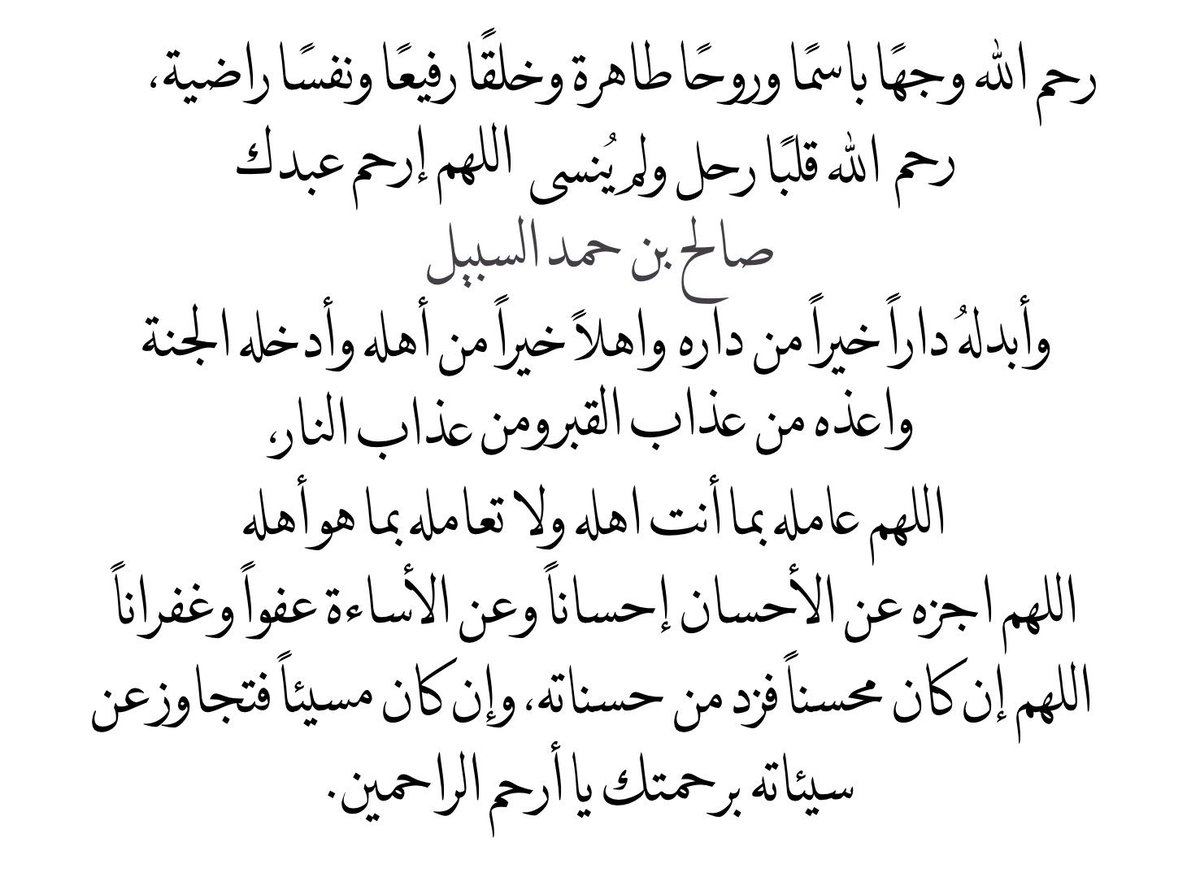 رحم الله وجهًا باسمًا وروحًا طاهرة وخلقًا رفيعًا ونفسًا راضية،
رحم الله قلبًا رحل ولم يُنسى اللهم إرحم عبدك
صالح بن حمد السبيل
وأبدلهُ داراً خيراً من داره واهلاً خيراً من أهله وأدخله الجنة
واعذه من عذاب القبرومن عذاب النار،
اللهم عامله بما أنت اهله ولا تعامله بما هو أهله
اللهم اجزه عن الأحسان إحساناً وعن الأساءة عفواً وغفراناً
اللهم إن كان محسناً فزد من حسناته، وإن كان مسيئاً فتجاوز عن
سيئاته برحمتك يا أرحم الراحمين.